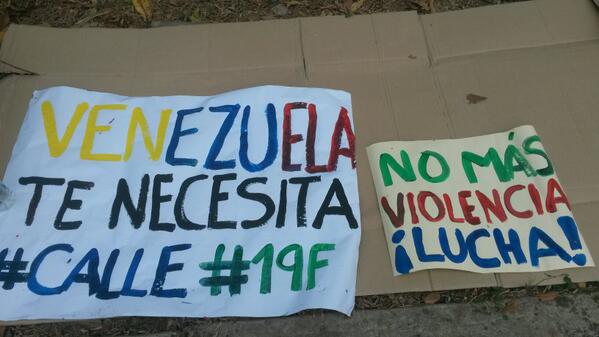 VENEZUELA
TE NECESITA
#CALLE #19F
NO MÁS
VIOLENCIA
¡LUCHA!